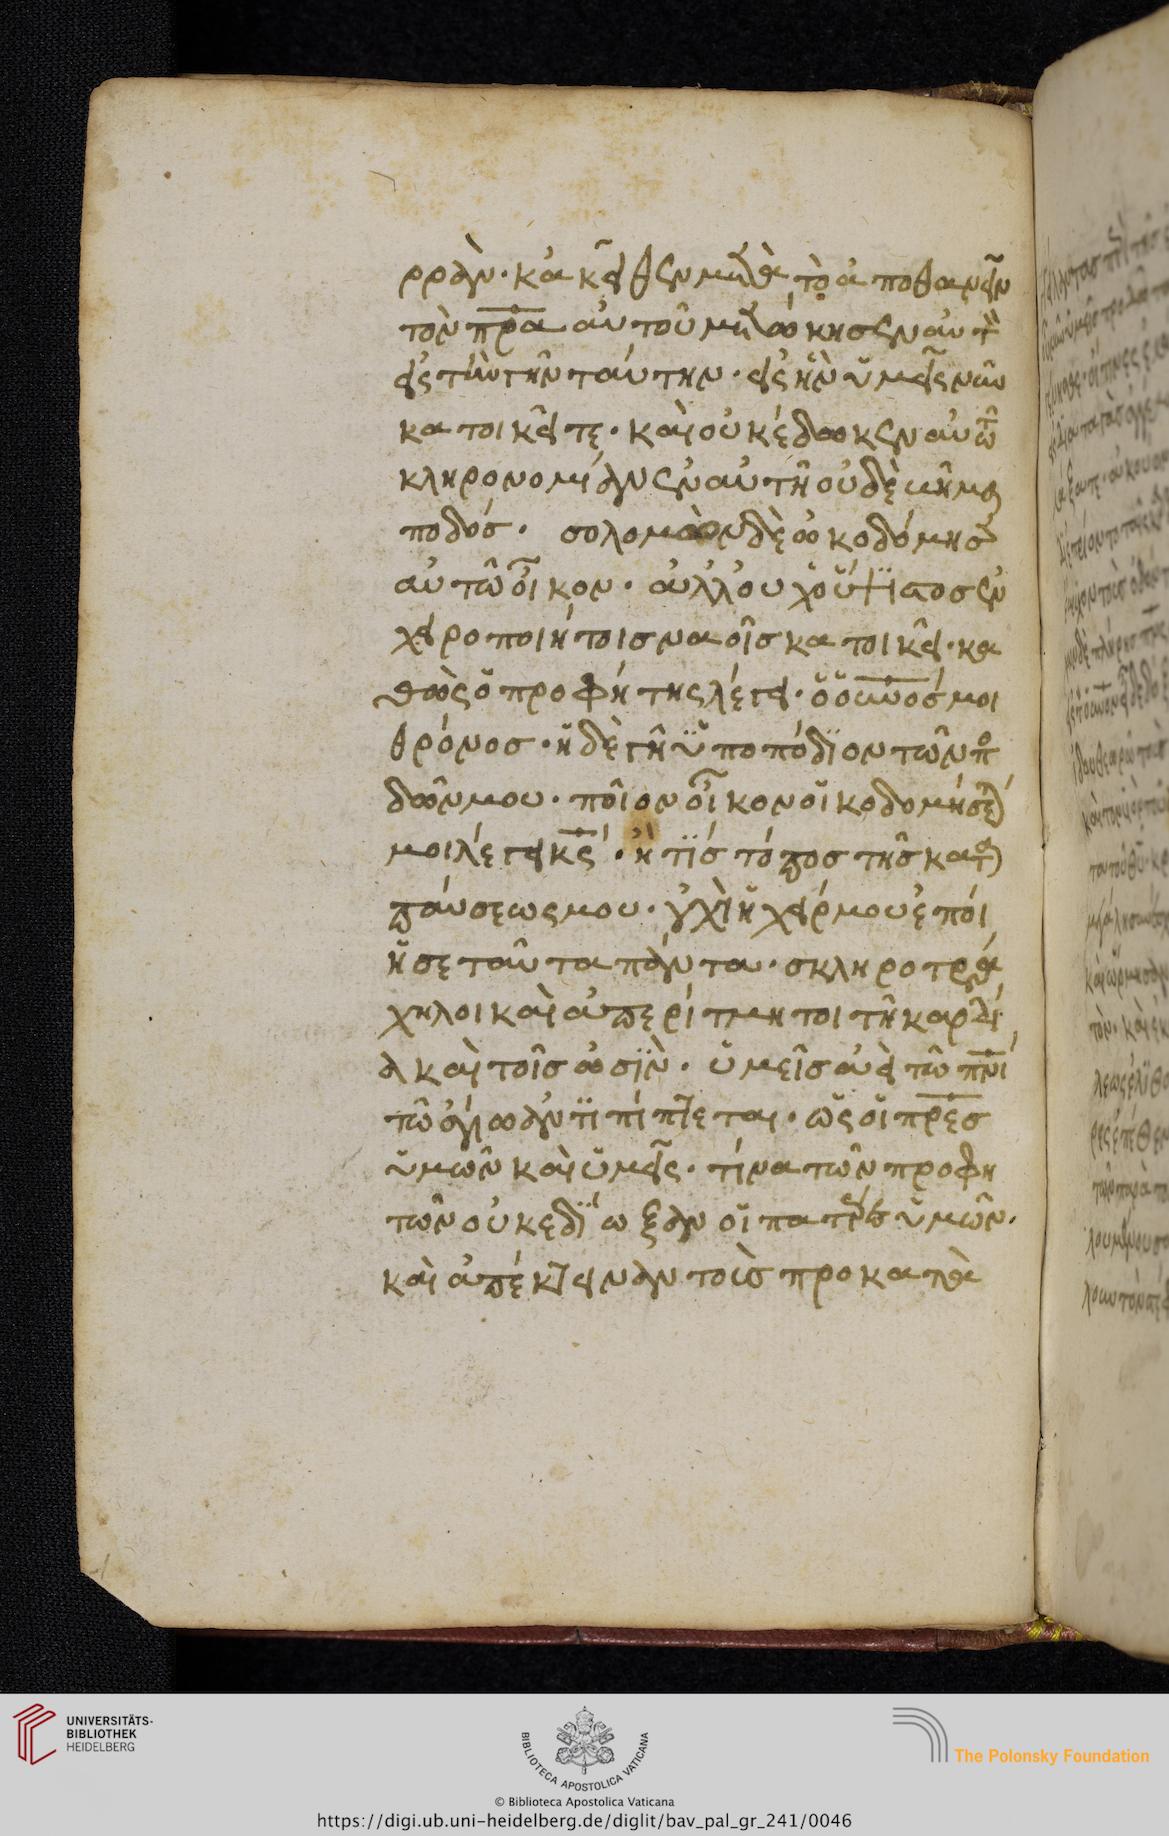 ρραν· κἀκεῖθεν μετὰ τὸ ἀποθανεῖν
τὸν πρα αὐτοῦ μετώκησεν αὐτὸν
εἰς τὴν γῆν ταύτην· εἰς ἣν ὑμεῖς νῦν
κατοικεῖτε· καὶ οὐκ ἔδωκεν αὐτῶ
κληρονομίαν ἐν αὐτῆ οὐδὲ βῆμα
ποδός· σολομὼν δὲ ὠκοδόμησεν
αὐτῶ οἶκον· ἀλλ οὐχ ὁ ὕψιστος ἐν
χειροποιήτοις ναοῖς κατοικεῖ· κα
θὼς ὁ προφήτης λέγει· ὁ οὐνος μοι
θρόνος· ἡ δὲ γῆ ὑποπόδϊον τῶν πο
δῶν μου· ποῖον οἶκον οἰκοδομήσετέ
μοι λέγει κς· ἢ τίς τόπος τῆς κατα
παύσεως μου· οὐχὶ ἡ χείρ μου ἐποί
ησε ταῦτα πάντα· σκληροτρά
χηλοι καὶ ἀπερίτμητοι τῆ καρδί
α καὶ τοῖς ὠσὶν· ὑμεῖς ἀεὶ τῶ πνι
τῶ ἁγίω ἀντιπίπτεται· ὡς οἱ πρες
ὑμῶν καὶ ὑμεῖς· τίνα τῶν προφη
τῶν οὐκ εδίωξαν οἱ πατέρες ὑμῶν·
καὶ ἀπέκτειναν τοὺς προκατα
UNIVERSITÄTS-
BIBLIOTHEK
HEIDELBERG
BIBLIOTECA APOSTOLICA VATICANA
The Polonsky Foundation
© Biblioteca Apostolica Vaticana
https://digi.ub.uni-heidelberg.de/diglit/bav_pal_gr_241/0046